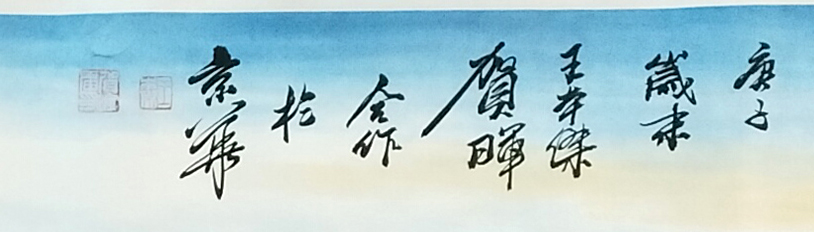 庚子
歲末
王本傑
賀暉
合作
於
京華